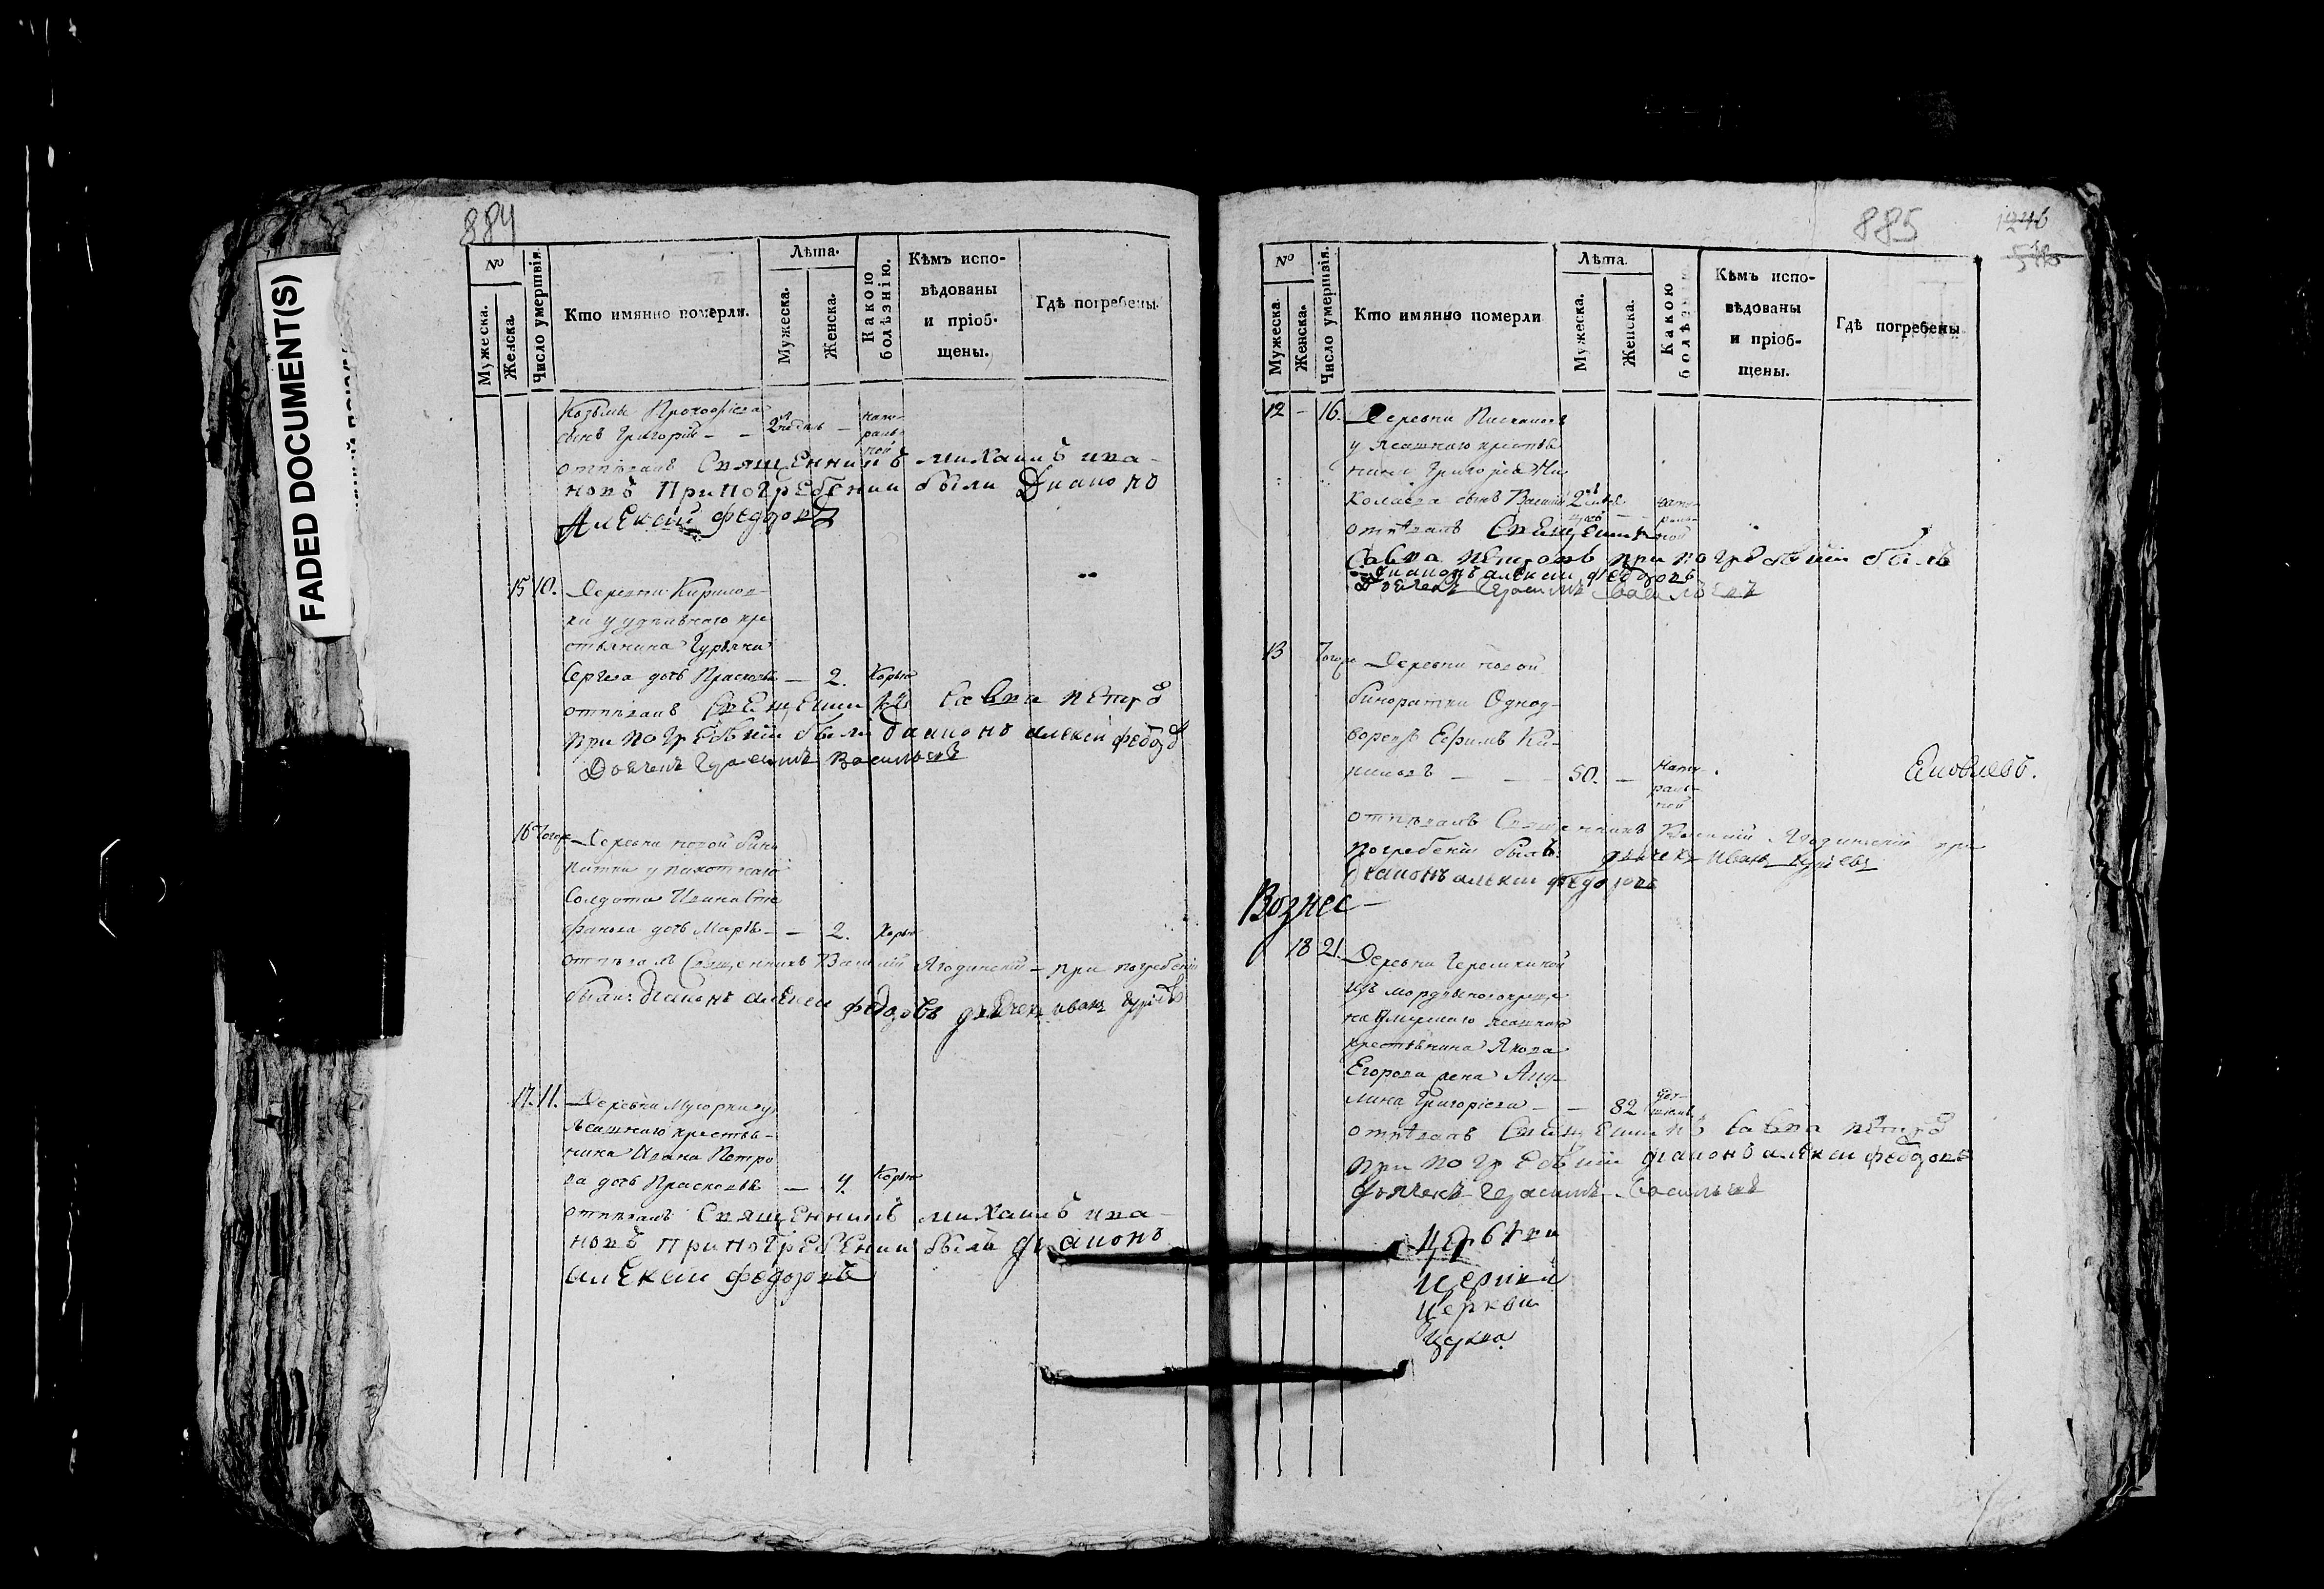 884
FADED DOCUMENT(S)
№
Мужеска.
Женска.
Число умертвія.
Кто имянно померли.
Лѣта.
Мужеска.
Женска.
Какою болѣзнію.
Кѣмъ испо-
вѣдованы
и пріоб-
щены.
Гдѣ погребены.
Козьмы Прокофьева
сынъ Григорій - - 2 недѣль - нату-
раль-
ной
отпѣвалъ Священникъ михаилъ ива-
новъ При погребении были Диаконъ
Алексей федоровъ
15 10. Деревни Кирилов-
ки у удѣльнаго кре
стьянина Гурьяна
Сергева дочь Прасковья — 2. Корью
отпѣвалъ Савва петров
при погребѣніи были диаконъ алексей федоров
Дьячекъ Герасимъ Васильевъ
16 Тогож Деревни новой бина
ратки у пахотнаго
Солдата Ивана Сте
фанова дочь Марья - — 2. Корью
отпѣвалъ Священникъ Василій Ягодинскій - при погребеніи
были: диаконъ алексеи федоровъ дьячекъ иванъ
17. 11. Деревни у
ясашнаго крестья-
нина Ивана Петро
ва дочь Прасковья — 4. Корью
отпѣвалъ Священникъ михаилъ ива-
новъ при погребении были диаконъ
алексеи федоровъ
885
1246
№
Мужеска.
Женска.
Число умертвія.
Кто имянно померли
Лѣта.
Мужеска.
Женска.
Какою
Кѣмъ испо-
вѣдованы
и пріоб-
щены.
Гдѣ погребены
12 - 16. Деревни
у Ясашнаго крестья
нина Григорья Ни
колаева сынъ Василій 2 нату-
раль-
ной
отпѣвалъ
Савва петровъ при погребѣніи былъ
диаконъ алексеи федоровъ
Дьячекъ Герасимъ Васильевъ
13 Тогож Деревни новой
бинаратки Однод-
ворецъ Ефимъ Ки-
риловъ — — 50. — нату
раль-
ной
Яковлевъ.
отпѣвалъ Священникъ Василій Ягодинскій при
погребеніи былъ: дьячекъ иванъ
диаконъ алексеи федоровъ
Вознес—
18 21. Деревни Черемхиной
изъ мордвы новокреще
на умершаго ясашнаго
крестьянина Якова
Егорова жена Аку-
лина Григорьева - — 82
отпѣвалъ Савва петров
при погребѣніи диаконъ алексеи федоровъ
Дьячекъ Герасимъ Васильевъ
церкви